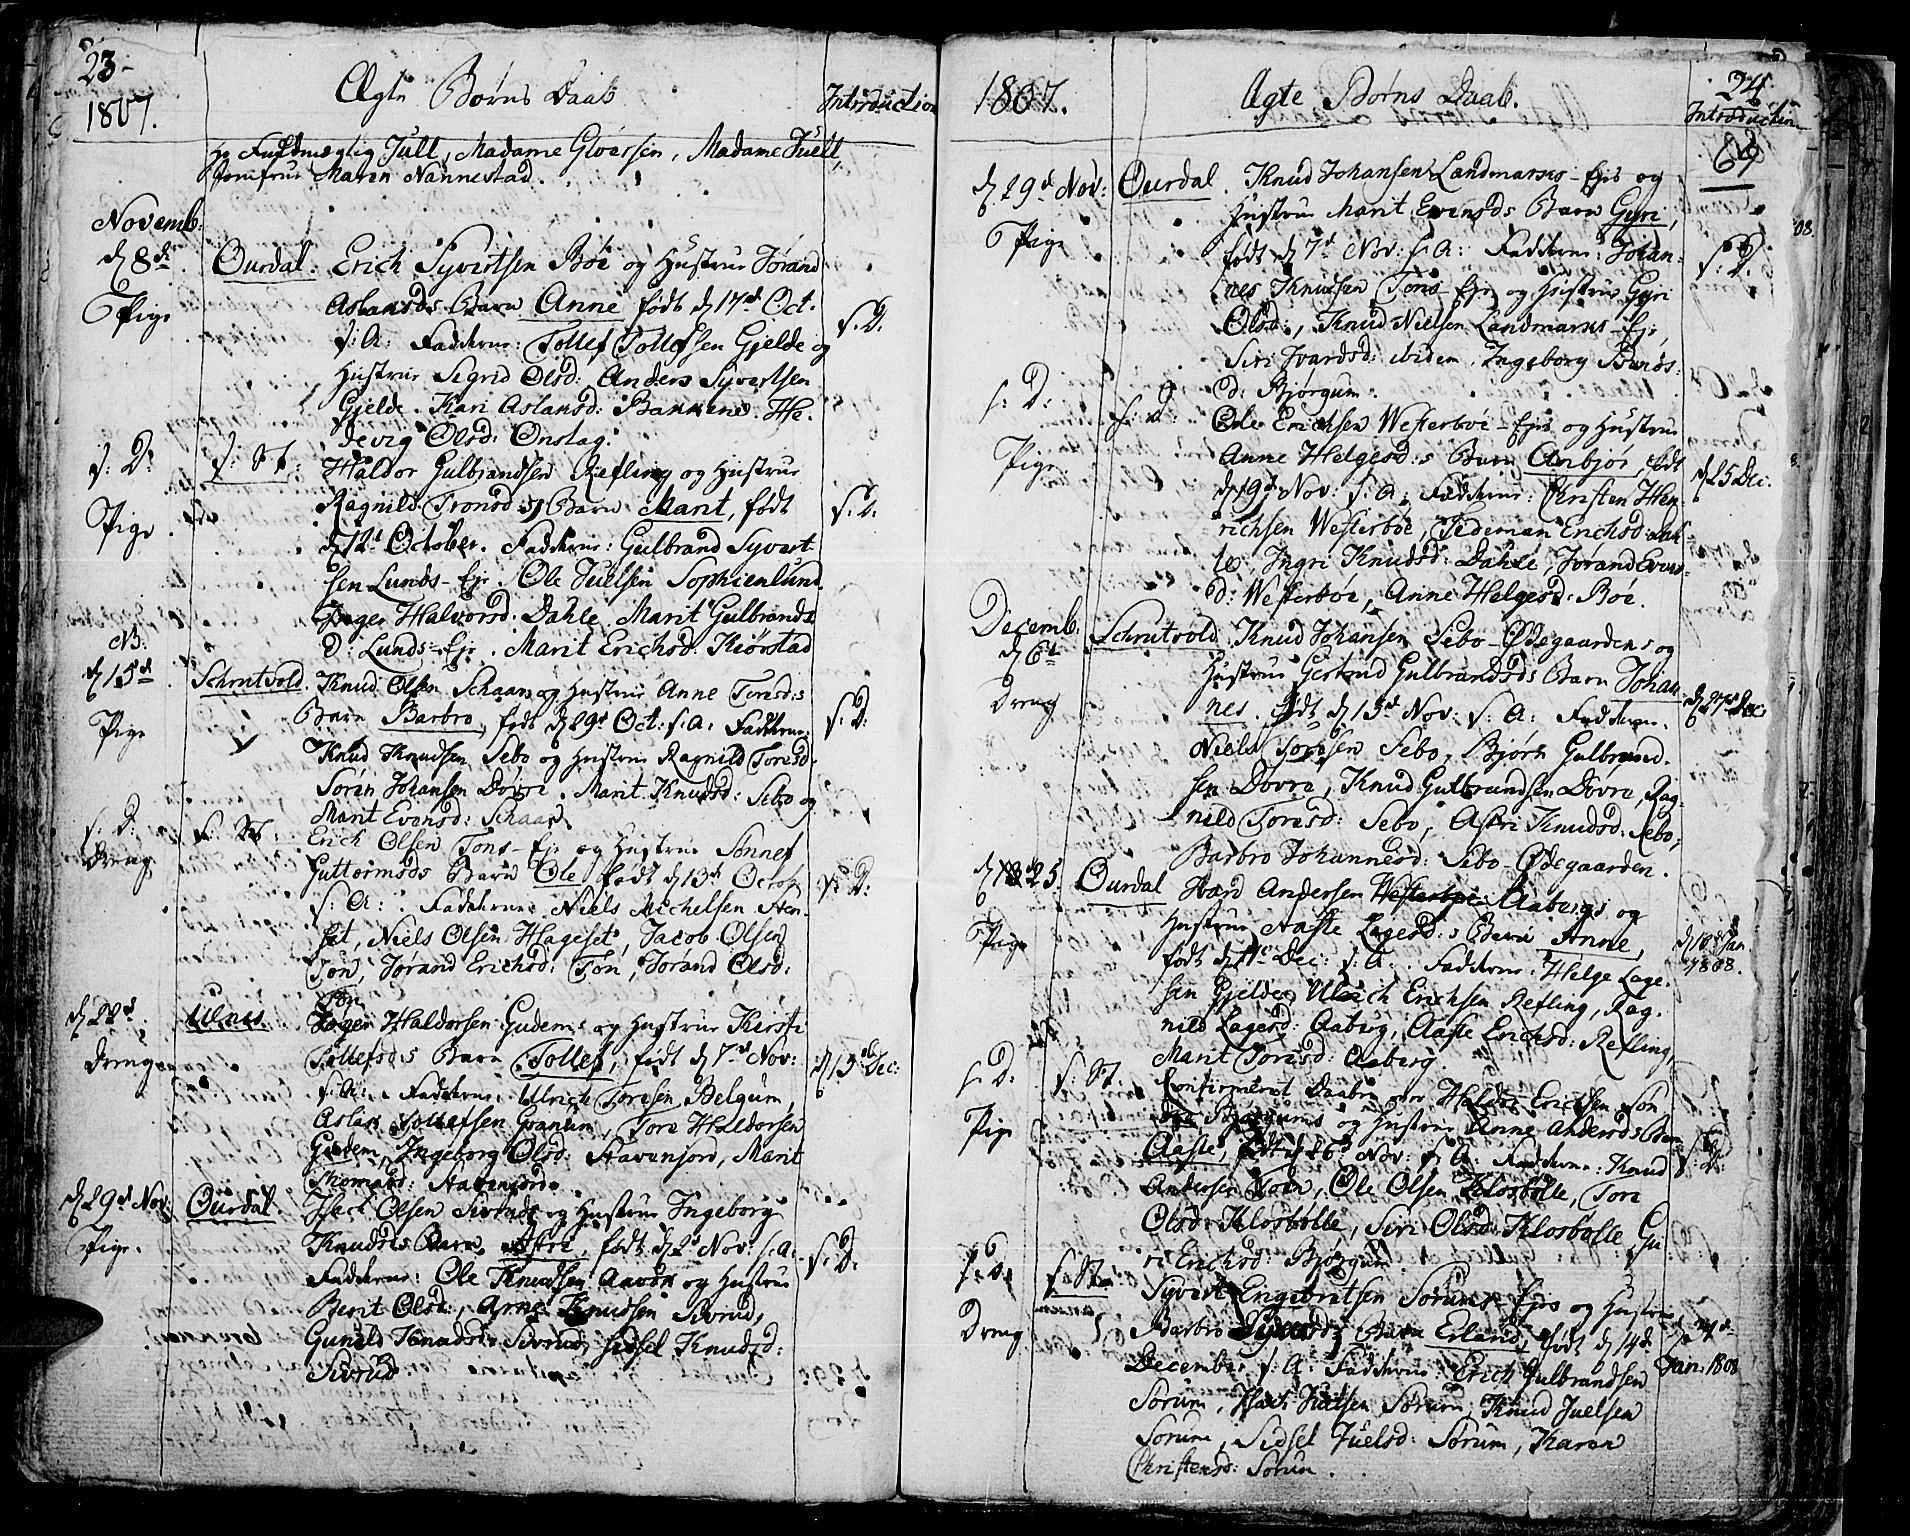 23
1807.
Ægte Børns Daab
Introduction
Hr Fuldmægtig Jull, Madame Gloersen, Madame Juell,
Jomfrue Maren Nannestad.
Novemb:
d 8de
Pige
Ourdal.
Erich Syvertsen Bøe og Hustrue Jørand
Aslaksds Barn Anne født d 17d Oct.
s: A: Fadderne: Tollef Tollefsen Gjelde og
Hustrue Sigrid Olsd: Anders Syvertsen
Gjelde. Kari Aslaksd: Bakkene. He-
devig Olsd: Onstag.
s: D:
s: D:
Pige
s: St:
Haldor Gulbrandsen Refling og Hustrue
Ragnild Tronsds Barn Marit, født
d 12d October. Fadderne: Gulbrand Syvert-
sen Lunds-Eje. Ole Juelsen Sophienlund.
Inger Halvorsd: Dahle. Marit Gulbrands
D: Lunds-Eje. Marit Erichsd: Kiørstad
s: D:
NB.
d 15d
Pige
Schrutvold.
Knud Olsen Schaars og Hustrue Anne Toresd:s
Barn Barbro, født d 29d Oct: s: A: Fadderne:
Knud Knudsen Sebo og Hustrue Ragnild Toresd.
Søren Johansen Dovre. Marit Knudsd: Sebo og
Marit Evensd: Schaar.
s: D:
s: D:
Dreng
s: St:
Erich Olsen Tons-Eje og Hustrue Sønnev
Guttormsds Barn Ole født d 13d Octob
s: A: Fadderne Niels Michelsen Hen-
set, Niels Olsen Hageset, Jacob Olsen
Ton, Jørand Erichsd: Ton, Jørand Olsd:
Ton.
s: D:
d 22d
Dreng
Ulnes.
Inger Haldorsen Gudems og Hustrue Kirsti
Tollefsds Barn Tollef, født d 7d Nov:
s: A: Fadderne: Ulrich Toresen Belgum,
Aslak Tollefsen Granum, Tore Haldorsen
Gudem, Ingeborg Olsd: Stavenjord, Marit
Thomasd: Stavenjorde.
d 13de Dec:
d 29d Nov:
Pige.
Ourdal.
Isach Olsen Sivruds og Hustrue Ingeborg
Knudsds Barn Astri, født d 2d Nov: s: A:
Fadderne: Ole Knudsen og Hustrue
Berit Olsd:, Arne Knudsen Sivrud,
Gunild Knudsd: Sivrud, Sidsel Knudsd:
Sivrud.
s: D:
1807.
Ægte Børns Daab.
24.
Introduction
69
d 29d Nov:
Pige
Ourdal.
Knud Johansen Landmarks-Ejes og
Hustrue Marit Evensds Barn Gyri,
født d 7d Nov: s: A: Fadderne: Johan-
nes Knudsen Tons-Eje og Hustrue Gyri
Olsd:, Knud Nielsen Landmarks-Eje,
Siri Ivarsd: ibidem. Ingeborg
D: Bjørgum.
s: D:
s: D:
Pige.
s: D:
Ole Erichsen Westerbøe-Ejes og Hustrue
Anne Helgesd:s Barn Anbjør, født
d 19d Nov: s: A: Fadderne: Christen Hen-
richsen Westerbøe, Tideman Erichsd: Dah-
le, Ingri Knudsd: Dahle, Jørand Evens-
D: Westerbøe, Anne Helgesd: Bøe.
d 25 Dec.
Decemb.
d 6t
Dreng
Schrutvold.
Knud Johansen Sebo-Ødegaardens og
Hustrue Gertrud Gulbrandsds Barn Johan-
nes. født d 13d Nov: s: A: Fadderne.
Niels Toresen Sebo, Bjørn Gulbrand-
sen Dovre, Knud Gulbrandsen Dovre, Rag-
nild Toresd: Sebo, Astri Knudsd: Sebo,
Barbro Johannesd: Sebo-Ødegaarden.
d 27d Dec:
d 25.
Pige
Ourdal
Ivard Andersen Westerbøe Aabergs og
Hustrue Aaste Lagesd:s Barn Anne,
født d 11t Dec: s: A. Fadderne: Helge Lage-
sen Gjelde, Ulrich Erichsen Refling, Rag-
nild Lagesd: Aaberg, Aaste Erichsd: Refling,
Marit Toresd: Aaberg.
d 10d Jan
1808.
s: D:
Pige
s: St:
Confirmeret Daaben over Haldor Erichsen Søn
Bjørgums og Hustrue Anne Andersds Barn
Aaste, født d 26d Nov: s: A: Fadderne: Knud
Andersen Toen, Ole Olsen Klosbølle, Tore
Olsd: Klosbølle, Siri Olsd: Klosbølle, Gu-
ri Erichsd: Bjørgum.
s: D:
s: D:
Dreng
s: St:
Syvert Engebretsen Sørums-Ejes og Hustrue
Barbro Barn Erland, født d 14d
December s: A: Fadderne: Erich Gulbrandsen
Sørum, Isach Juelsen Sørum, Knud Juelsen
Sørum, Sidsel Juelsd: Sørum, Karen
Christensd: Sørum.
d 24d
Jan: 1808